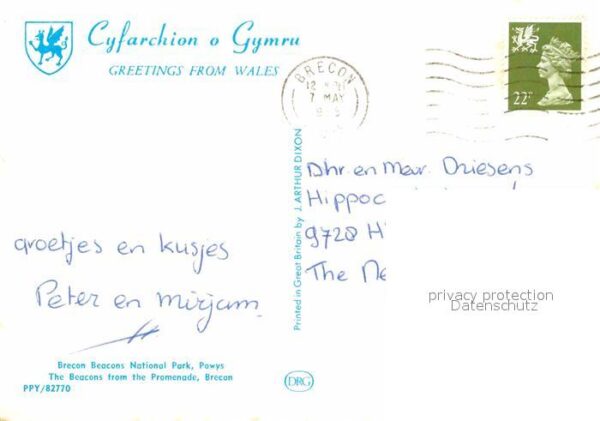 Cyfarchion o Gymru
GREETINGS FROM WALES
BRECON
7 MAY
22P
Dhr en Mevr. Driesens
Hippoc
9728 H
The Ne
privacy protection
Datenschutz
groetjes en kusjes
Peter en Mirjam
Printed in Great Britain by J. ARTHUR DIXON
Brecon Beacons National Park, Powys
The Beacons from the Promenade, Brecon
PPY/82770
DRG